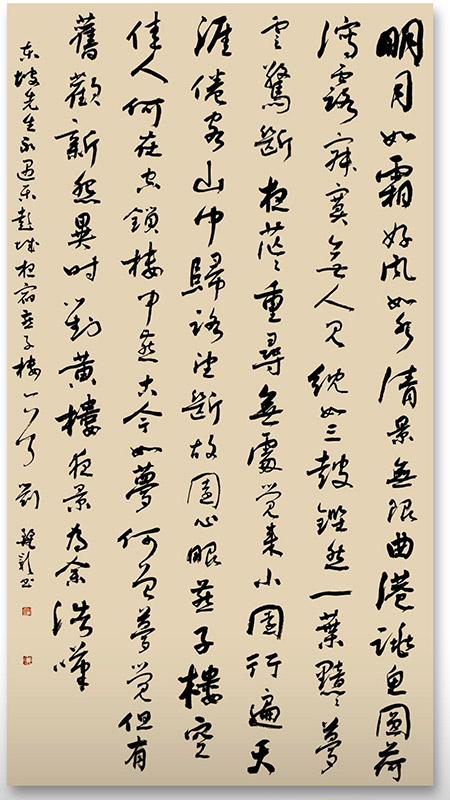 明月如霜好風如水清景無限曲港跳魚圓荷
瀉露寂寞無人見紞如三鼓鏗然一葉黯々夢
雲驚斷夜茫々重尋無處覺來小園行遍天
涯倦客山中歸路望斷故園心眼燕子樓空
佳人何在空鎖樓中燕古今如夢何曾夢覺但有
舊歡新怨異時對黃樓夜景為余浩嘆
东坡先生永遇乐彭城夜宿燕子樓 劉 书